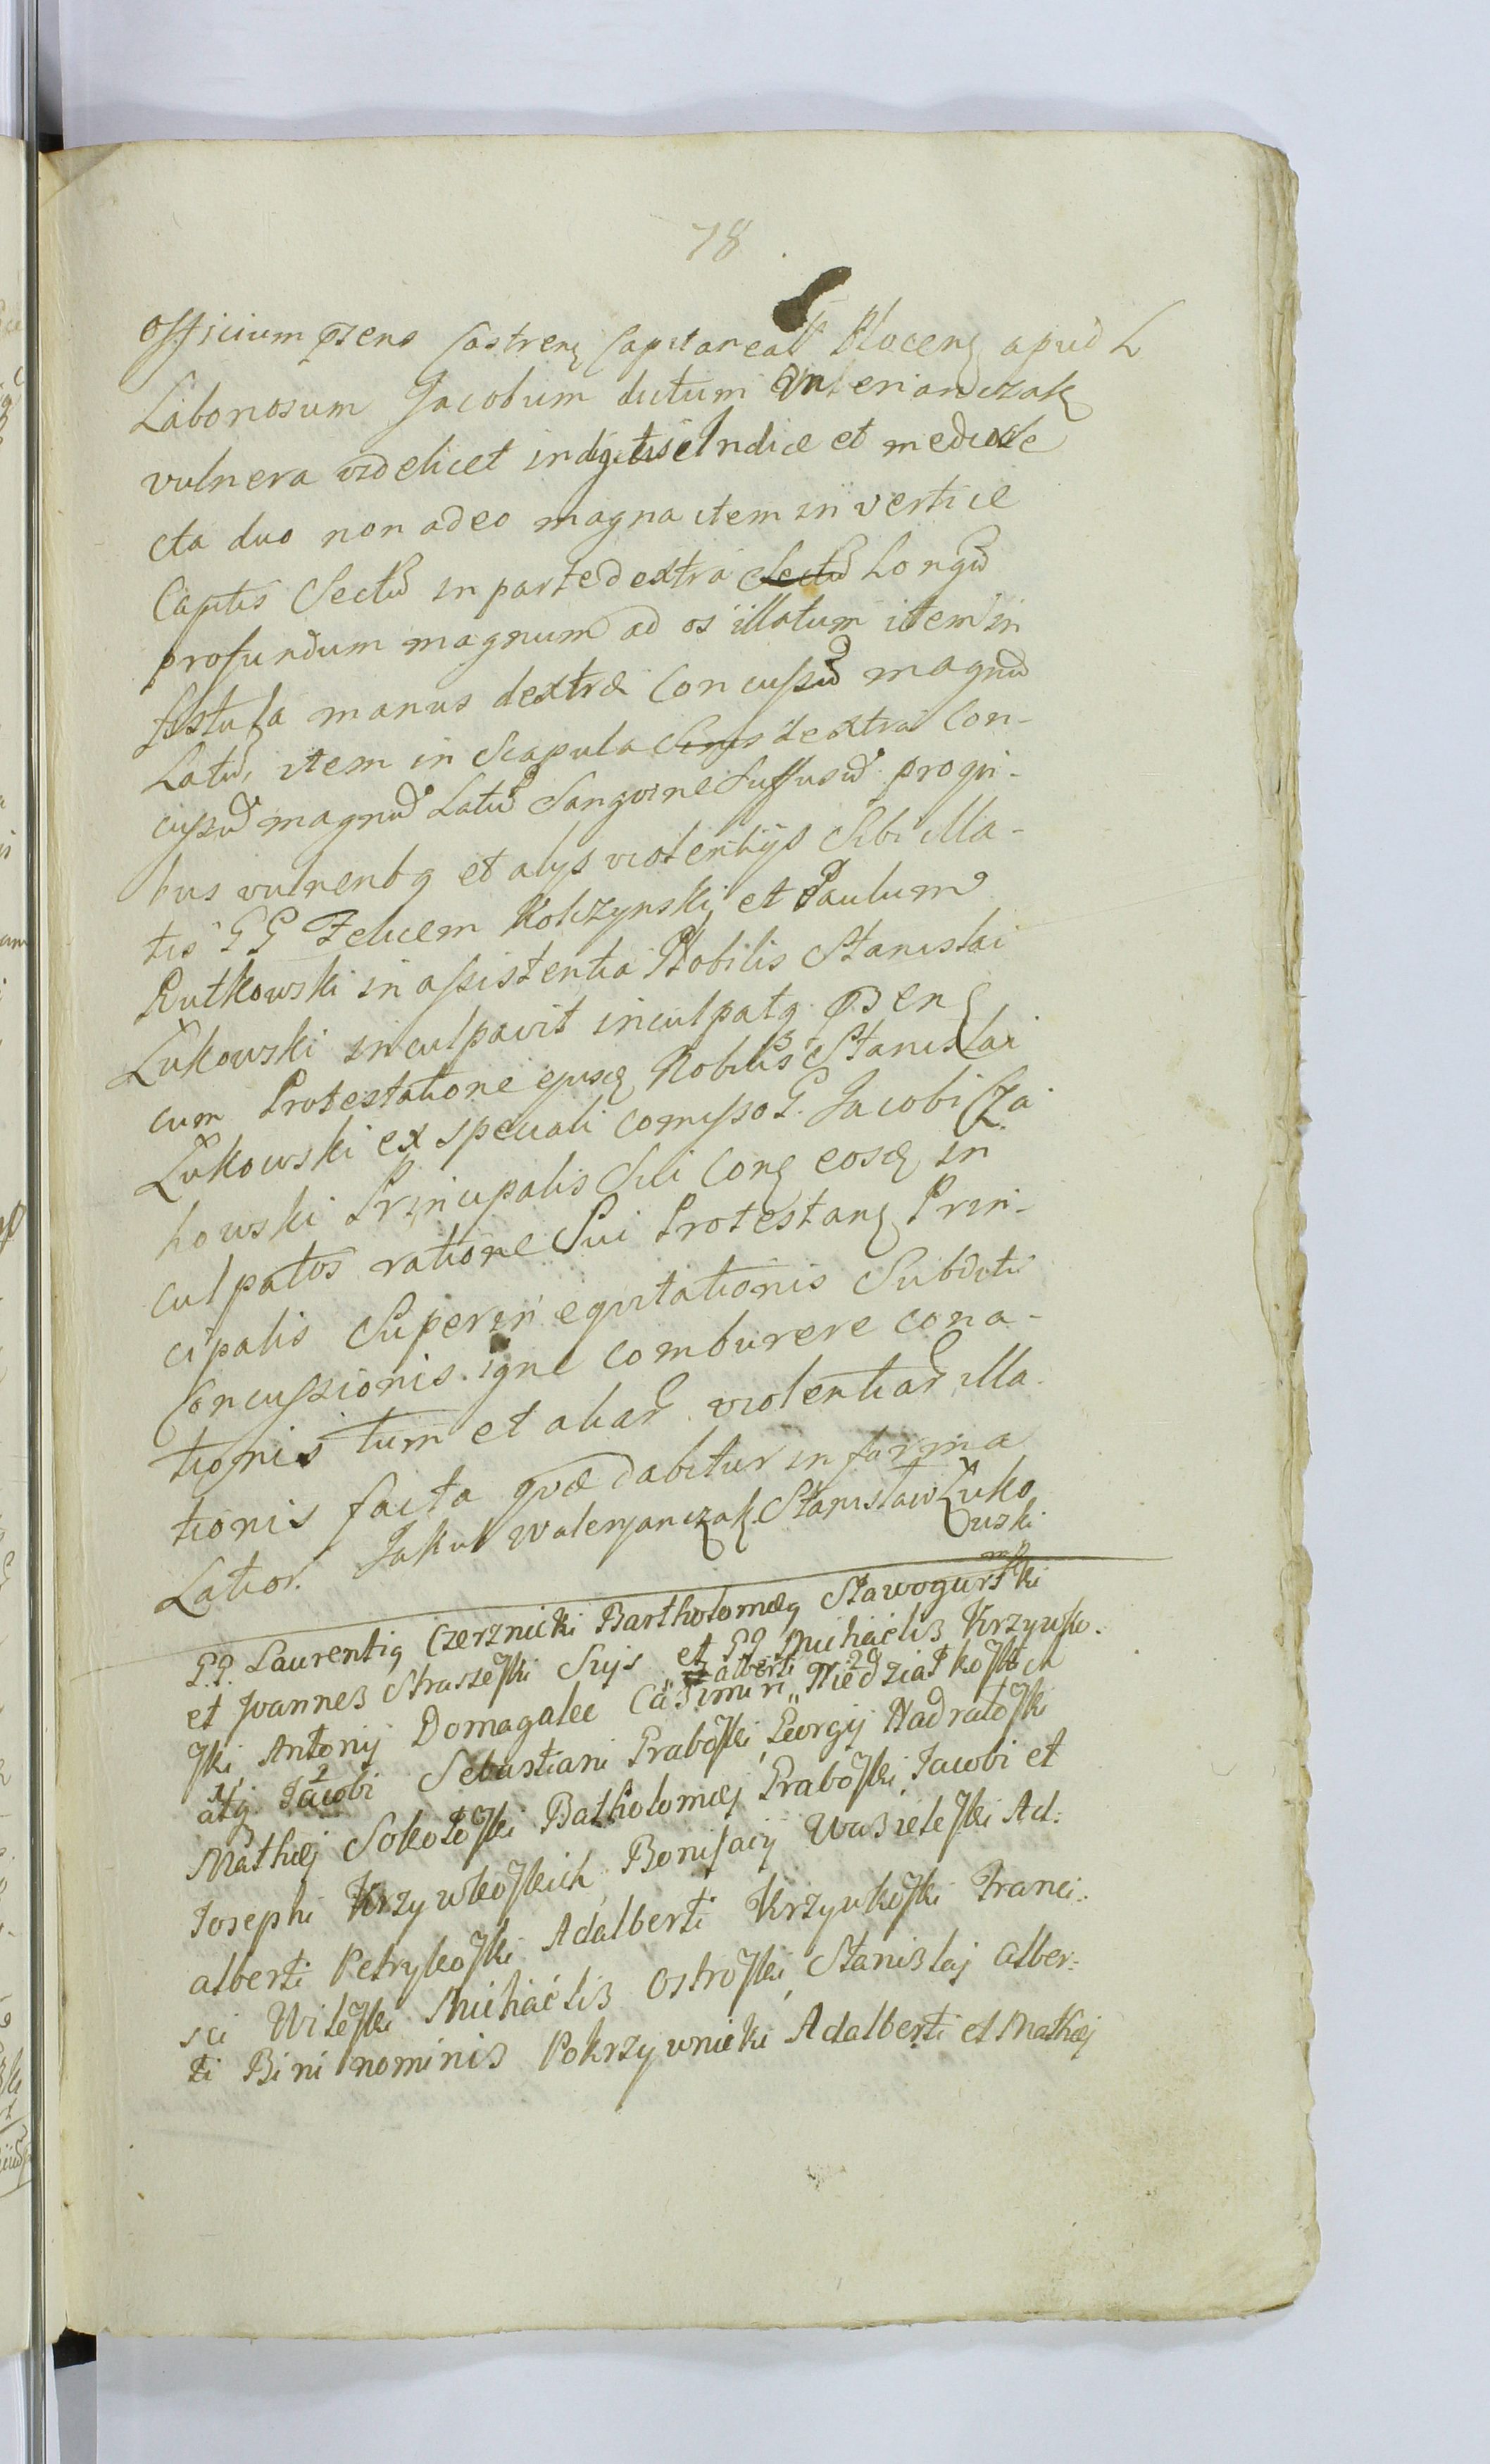 78
Officium pñens Castren Capitaneale Plocen apud L
Laboriosum Jacobum dictum Valerianczak
vulnera videlicet in digitis Indice et medio se
cta duo non adeo magna item in vertice
Captis Sectũ in parte dextra Sectũ Longũ
profundum magnum ad os illatum item in
fistula manus dextræ Concussũ magnũ
Latũ, item in Scapula Sinis dextra Con-
cussũ magnũ Latũ Sangvine Suffusũ pro qui-
bus vulneribq et alijs violentijs Sibi illa-
tis GG Felicem Kolczynski et Paulum
Rutkowski in assistentia Nobilis Stanislai
Łukowski inculpavit inculpatq pñen
cum Protestatione ejusd Nobilis Stanislai
Łukowski ex speciali comisso G. Jacobi Cza
howski Principalis Sui Con eosd in
culpatos ratione Sui Protestan Prin-
cipalis Superin equitationis Subditi
Concussionis igne comburere cona-
tionis tum et aliar violentiar illa-
tionis facta quæ dabitur in forma
Latior. Jakub Walenjanczak Stanisław Łuko
wski
mp
GG. Laurentiq Czerznicki Bartholomæq Stawogurski
et Joannes Straszeski Suijs et GG Michaelis Krzywko-
ski Antonij Domagalec Casimiri alberti Niedziałkoskich
atq Jacobi Sebastiani Graboski Georgij Nadratoski
Mathæj Sokołoski Batholomæj Graboski Jacobi et
Josephi Krzywkoskich Bonifacij Wasieleski Ad-
alberti Petrykoski Adalberti Krzywkoski Franci-
sci Wileski Michaelis Ostroski Stanislaj Alber-
ti Bini nominis Pokrzywnicki Adalberti et Mathæj